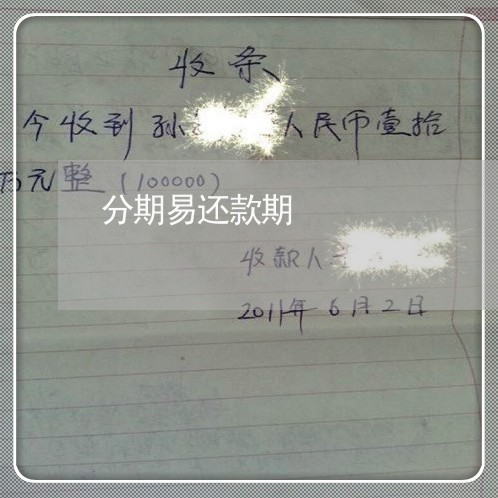 收条
今收到孙 人民币壹拾
万元整(100000)
分期易还款期
收款人
2011年6月2日